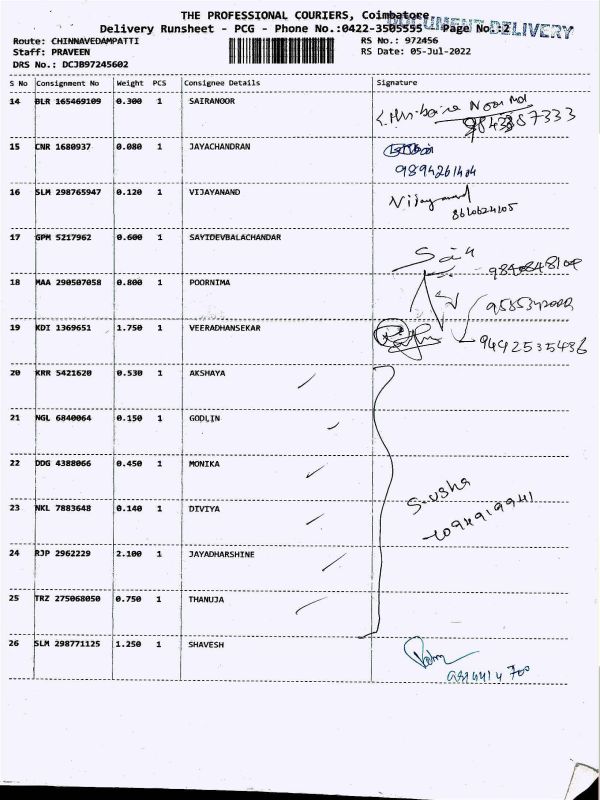 THE PROFESSIONAL COURIERS, Coimbatore
DOCUMENT DELIVERY
Delivery Runsheet - PCG - Phone No.:0422-3505555 Page No.:2
Route: CHINNAVEDAMPATTI RS No.: 972456
Staff: PRAVEEN RS Date: 05-Jul-2022
DRS No.: DCJB97245602
S No Consignment No Weight PCS Consignee Details Signature
14 BLR 165469109 0.300 1 SAIRANOOR
9843387333
15 CNR 1680937 0.080 1 JAYACHANDRAN
9894261404
16 SLM 298765947 0.120 1 VIJAYANAND Vijayanand
8610624105
17 GPM 5217962 0.600 1 SAYIDEVBALACHANDAR
18 MAA 290507058 0.800 1 POORNIMA
19 KDI 1369651 1.750 1 VEERADHANSEKAR
9442535436
20 KRR 5421620 0.530 1 AKSHAYA
21 NGL 6840064 0.150 1 GODLIN
22 DDG 4388066 0.450 1 MONIKA
23 NKL 7883648 0.140 1 DIVIYA S-usha
24 RJP 2962229 2.100 1 JAYADHARSHINE
25 TRZ 275068050 0.750 1 THANUJA
26 SLM 298771125 1.250 1 SHAVESH